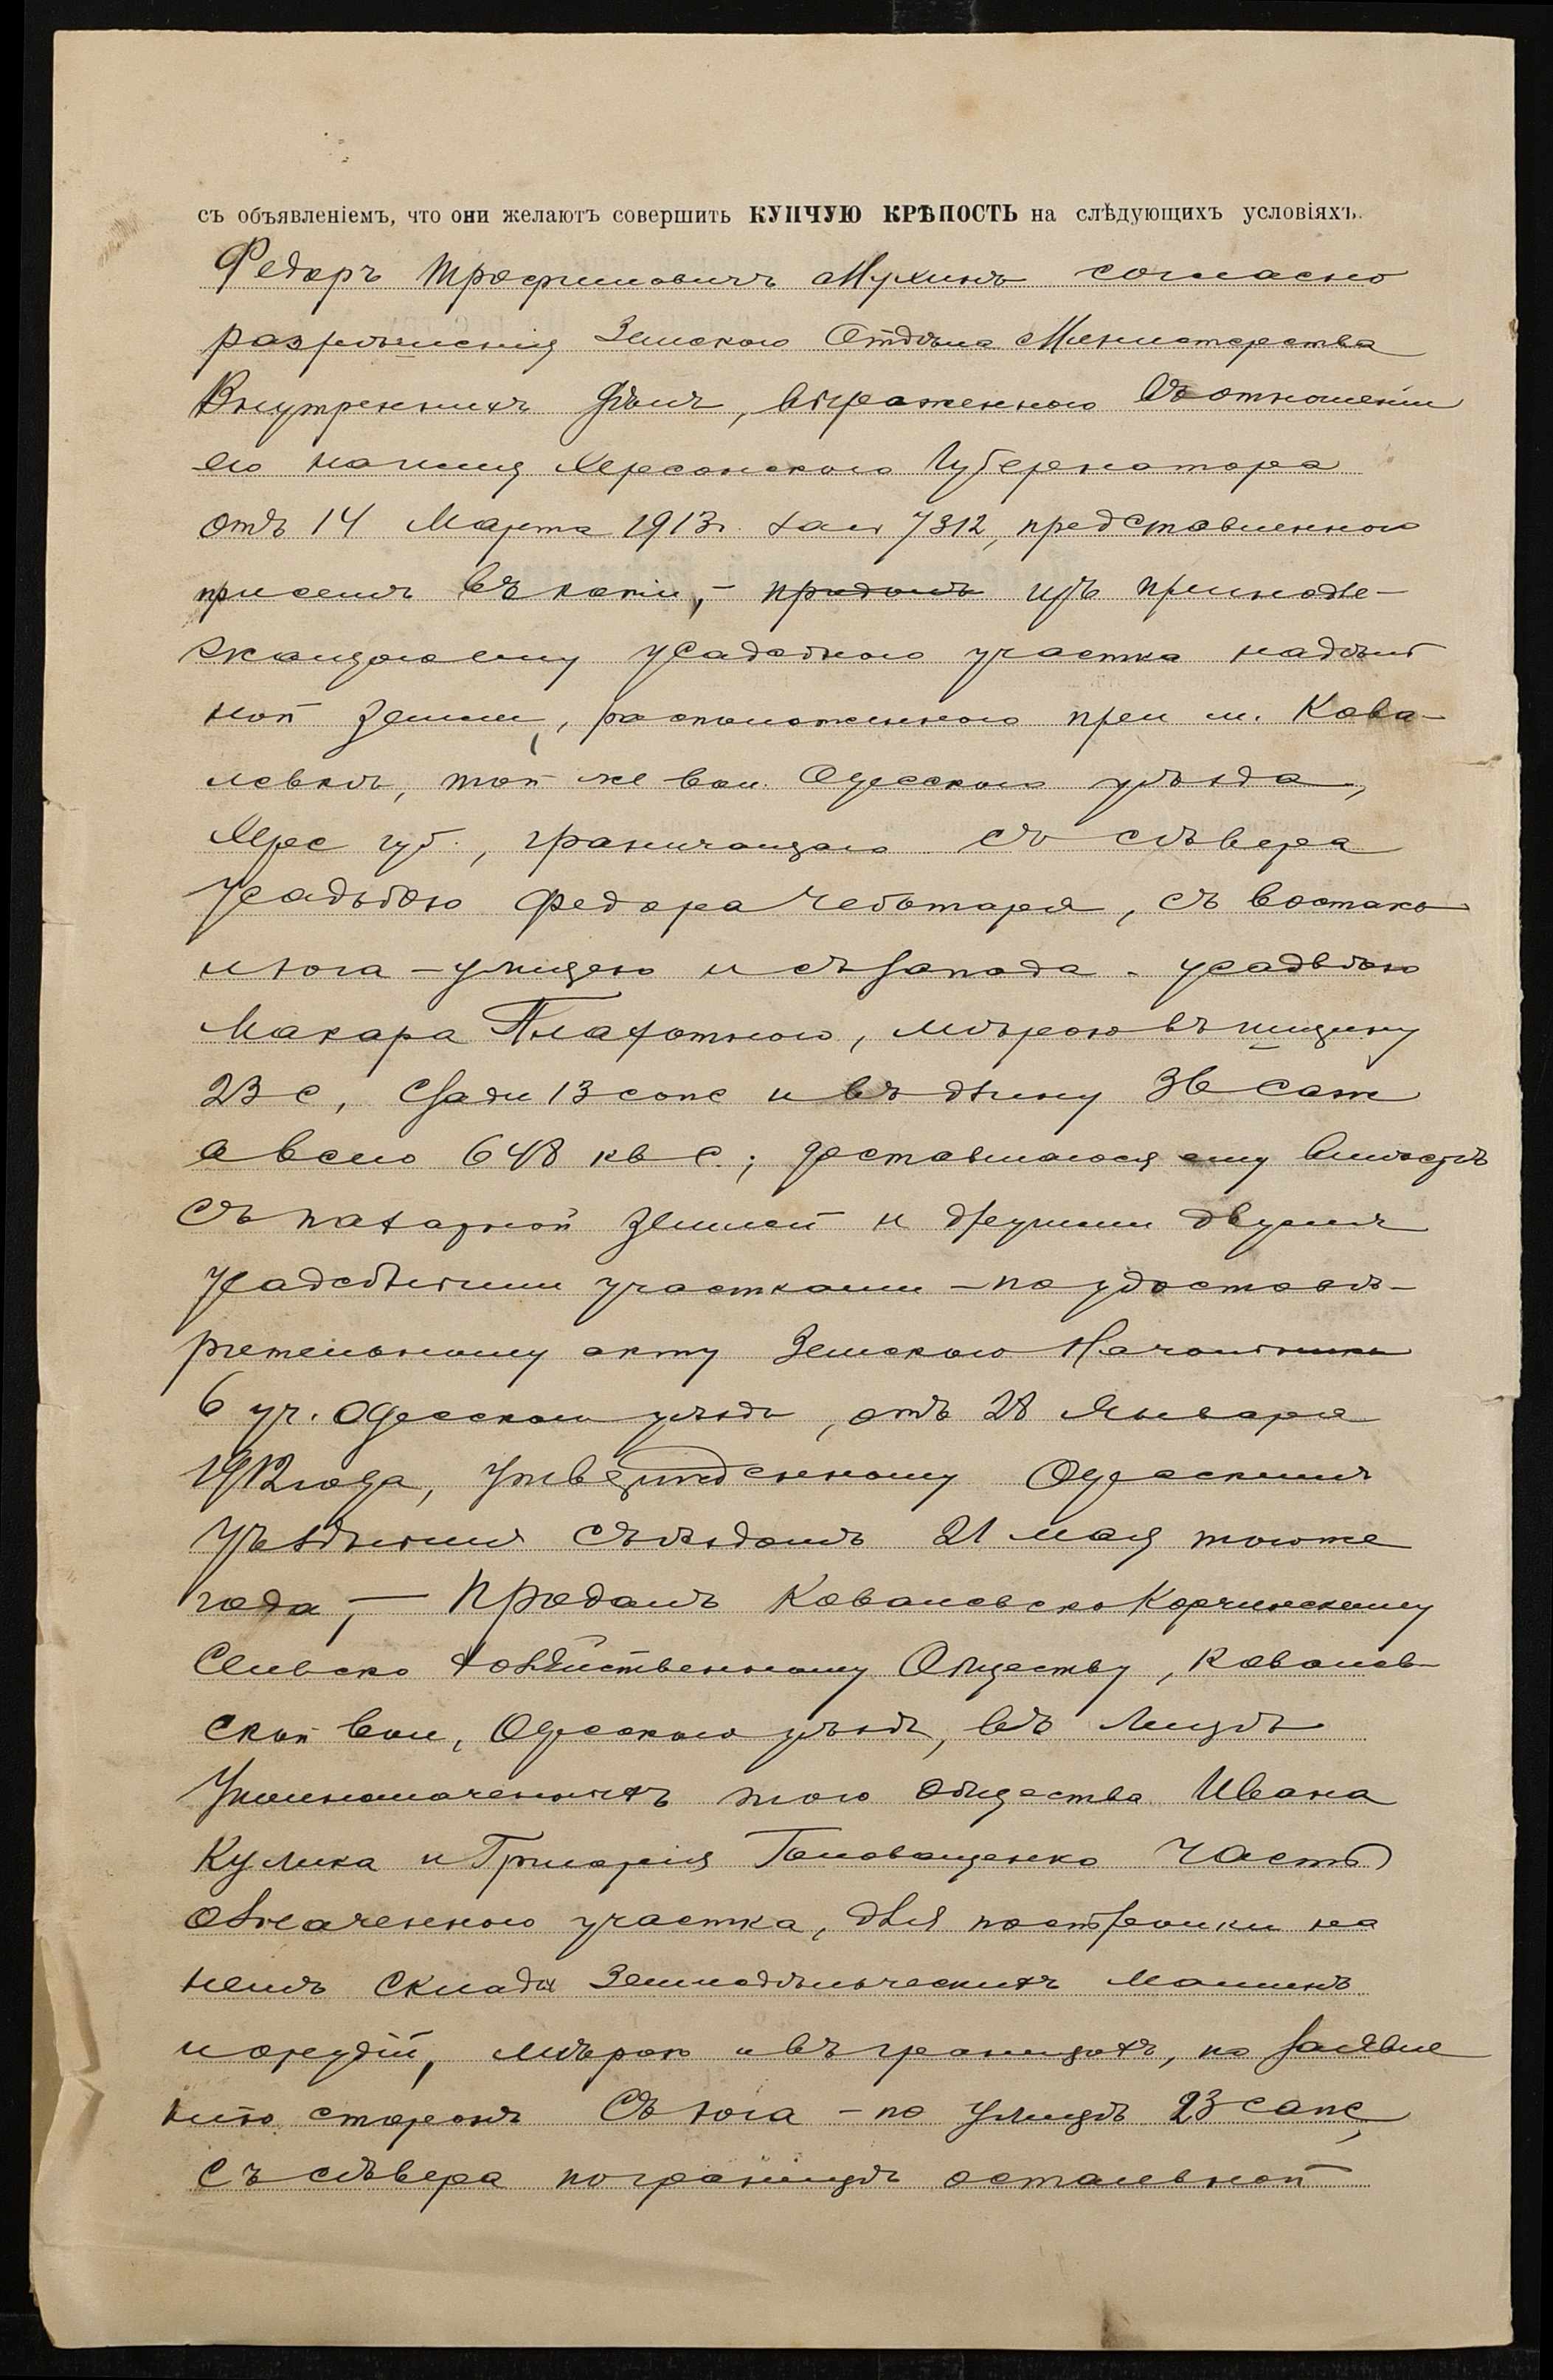 съ объявленіемъ, что они желаютъ совершить КУПЧУЮ КРѢПОСТЬ на слѣдующихъ условіяхъ.
Федоръ Трофимовичъ Мухинъ согласно
разрѣшенія Земскаго Отдѣла Министерства
Внутреннихъ Дѣлъ, выраженнаго въ отношеніи
его на имя Херсонскаго Губернатора
отъ 14 Марта 1913г. за № 7312, представленнаго
при семъ въ копіи, – продалъ изъ принадле-
жащаго ему усадебнаго участка надѣль
ной земли, расположеннаго при м. Кова-
левкѣ, той же вол. Одесскаго уѣзда,
Херс губ., граничащаго съ сѣвера
усадьбою Федора Чеботаря, съ востака
и юга – улицею и съ запада - усадьбою
Макара Платотного, мѣрою въ ширину
23 с, сзади 13 саж и въ длину 36 саж
а всего 648 кв с.; доставшагося ему вмѣстѣ
съ пахатной землей и другими двумя
усадебными участками – по удостовѣ-
рительному акту Земскаго Начальника
6 уч. Одесскаго уѣзда, отъ 28 Января
1912 года, утвержденному Одесскимъ
Уѣзднымъ Съѣздомъ 21 мая того же
года, – продалъ Ковалевско Корчинскому
Сельско хозяйственному Обществу, Ковалев-
ской вол, Одесскаго уѣзда, въ лицѣ
Уполномоченныхъ этого общества Ивана
Кулика и Григорія Головащенко часть
означеннаго участка, для постройки на
немъ склада Земледѣльческихъ машинъ
и орудій, мѣрою и въ границахъ, по заявле
нію сторонъ съ юга – по улицѣ 23 саж,
съ сѣвера по границѣ остальной